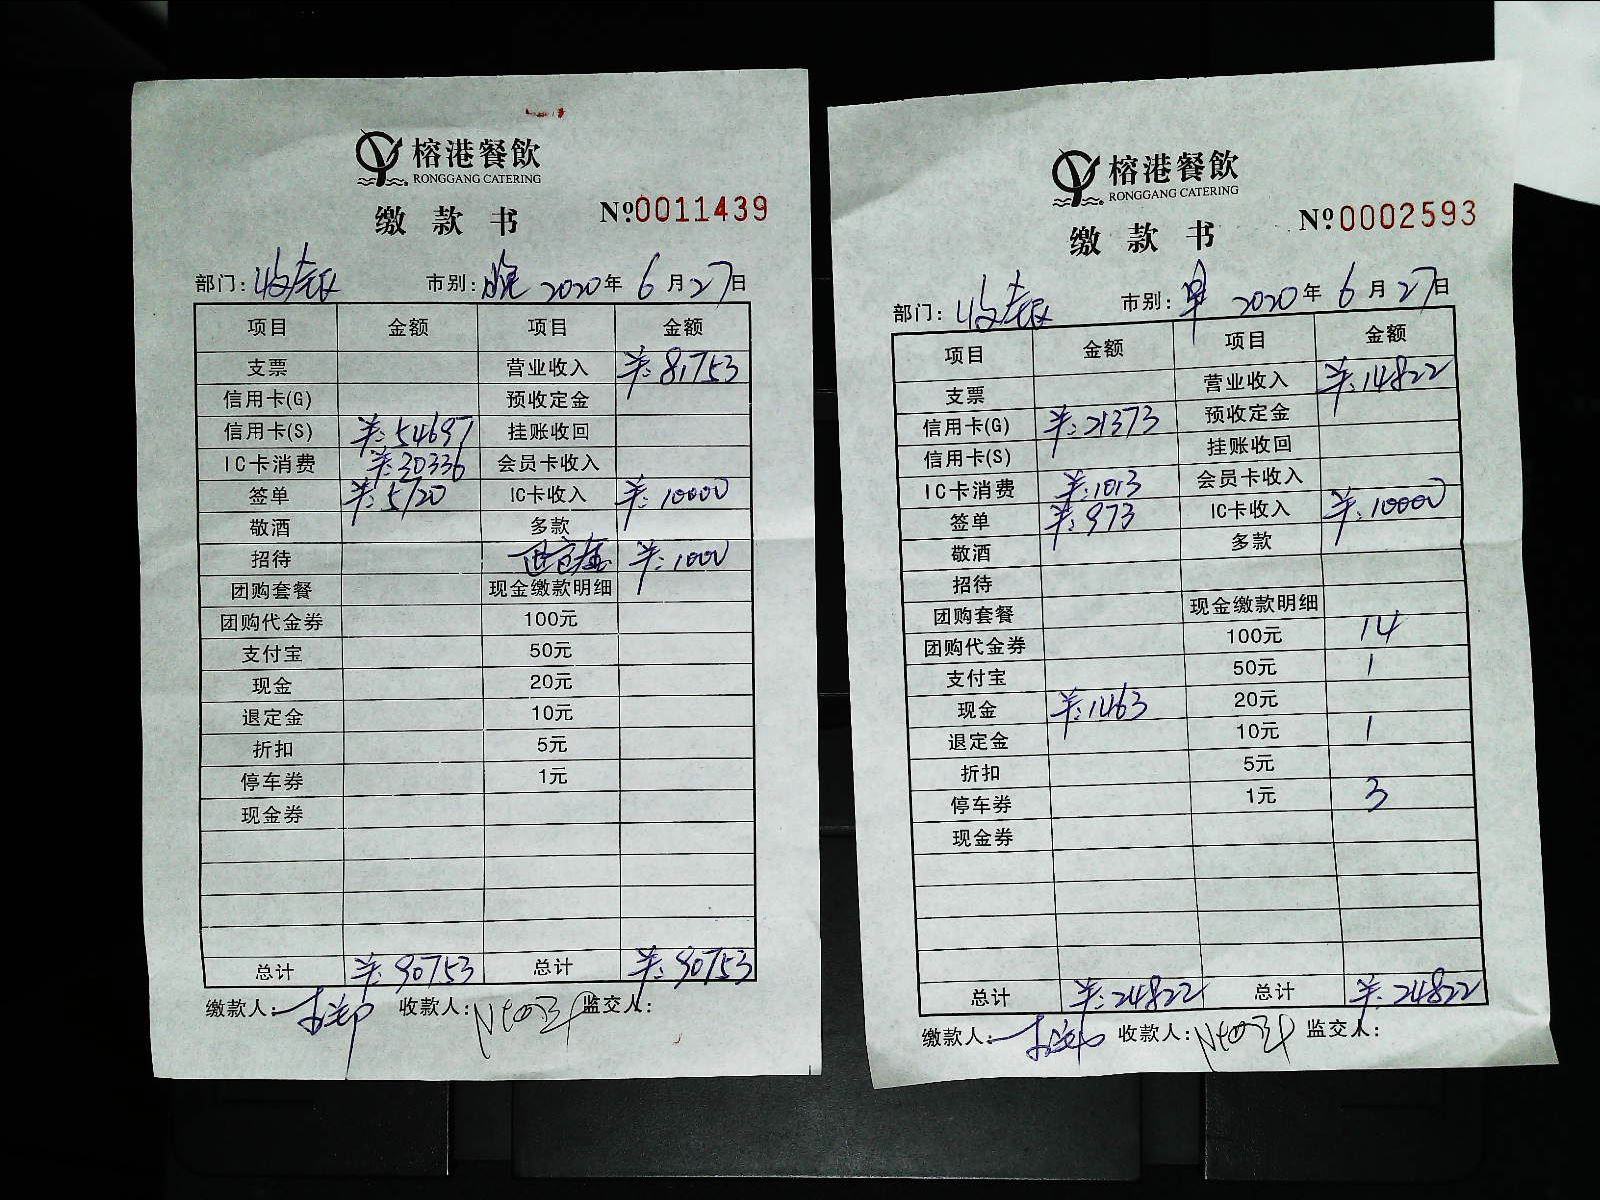 榕港餐飲
RONGGANG CATERING
缴款书
№0011439
部门：收银 市别：晚 2020年6月27日
项目 金额 项目 金额
支票 营业收入 ¥:81753
信用卡(G) 预收定金
信用卡(S) ¥:54697 挂账收回
IC卡消费 ¥:30336 会员卡收入
签单 ¥:5120 IC卡收入 ¥:10000
敬酒 多款
招待 ¥:1000
团购套餐 现金缴款明细
团购代金券 100元
支付宝 50元
现金 20元
退定金 10元
折扣 5元
停车券 1元
现金券
总计 ¥:90753 总计 ¥:90753
缴款人： 收款人： 监交人：
榕港餐飲
RONGGANG CATERING
缴款书
№0002593
部门：收银 市别：早 2020年6月27日
项目 金额 项目 金额
支票 营业收入 ¥:14822
信用卡(G) ¥:21373 预收定金
信用卡(S) 挂账收回
IC卡消费 ¥:1013 会员卡收入
签单 ¥:973 IC卡收入 ¥:10000
敬酒 多款
招待
团购套餐 现金缴款明细
团购代金券 100元 14
支付宝 50元 1
现金 ¥:1463 20元
退定金 10元 1
折扣 5元
停车券 1元 3
现金券
总计 ¥:24822 总计 ¥:24822
缴款人： 收款人： 监交人：